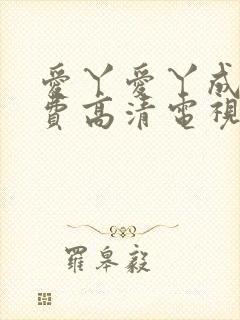 愛丫愛丫成
費高清電視
羅皋毅